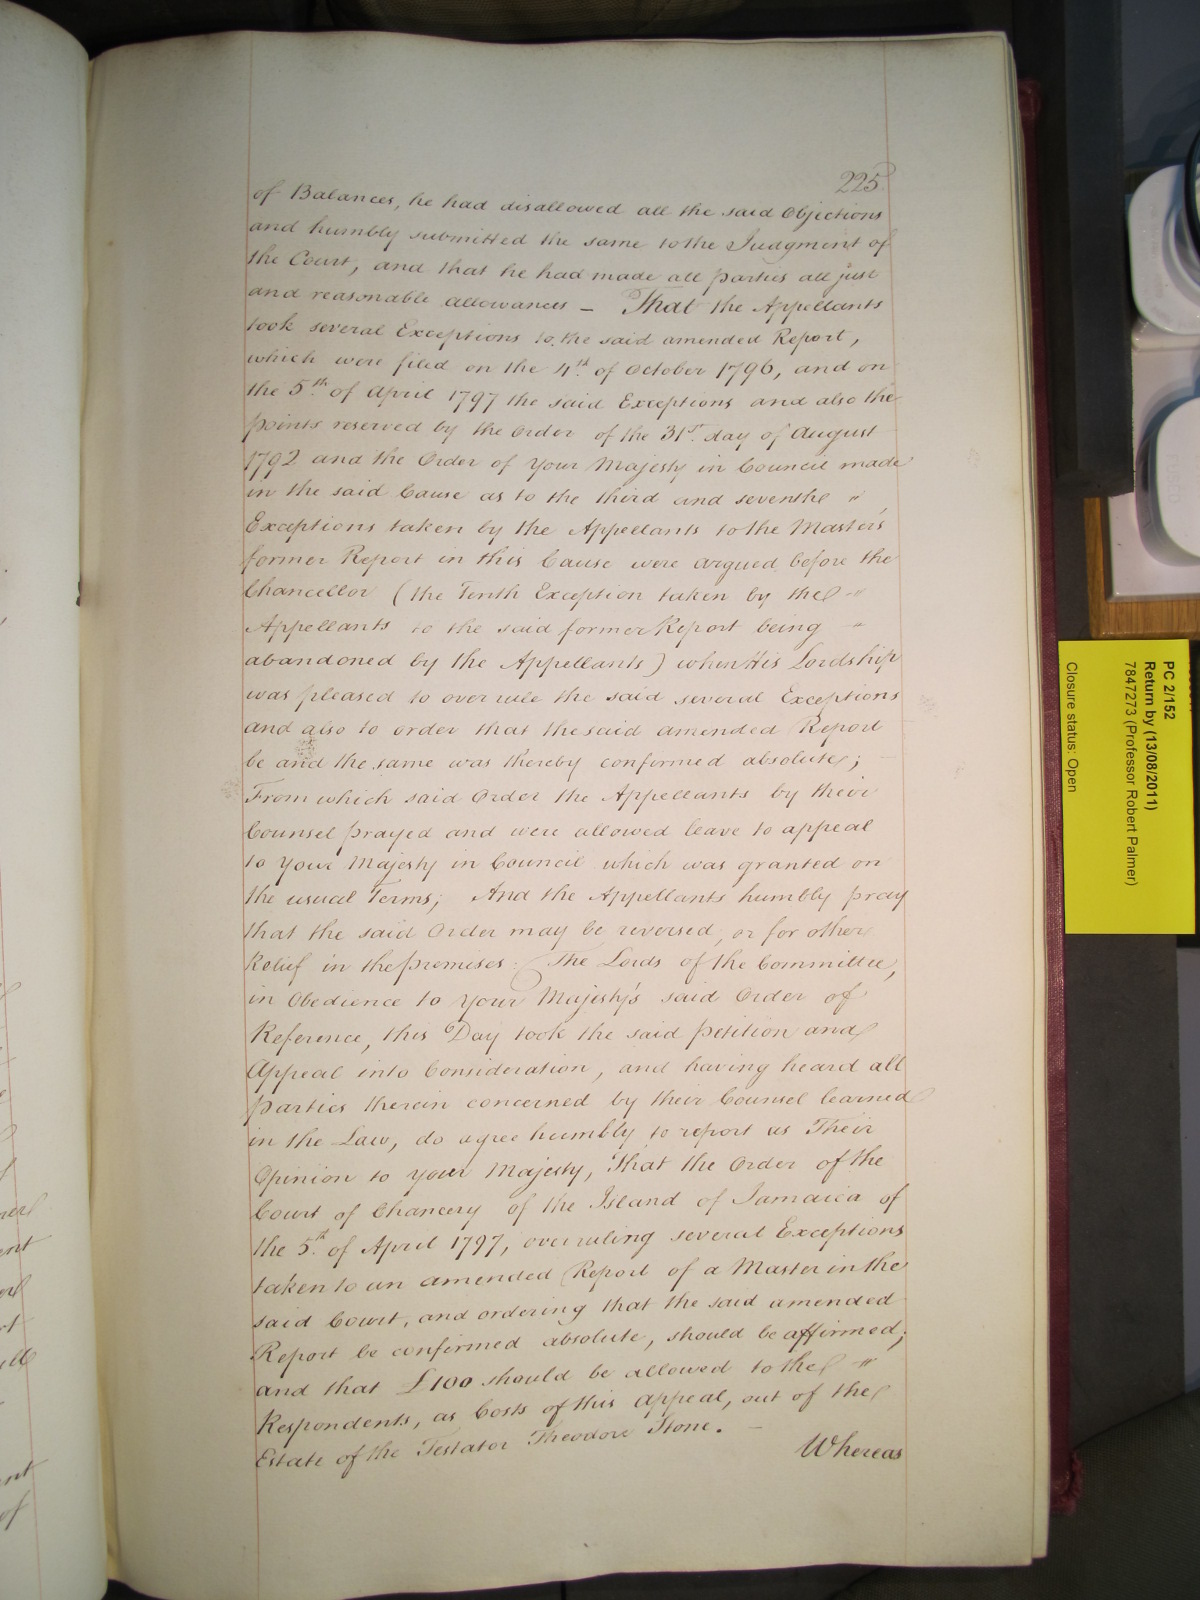 225.
of Balances, he had disallowed all the said Objections
and humbly submitted the same to the Judgment of
the Court, and that he had made all parties all just
and reasonable allowances — That the Appellants
took several Exceptions to the said amended Report,
which were filed on the 4th. of October 1796, and on
the 5th. of April 1797 the said Exceptions and also the
points reserved by the Order of the 31st. day of August
1792 and the Order of Your Majesty in Council made
in the said Cause as to the third and seventh "
Exceptions taken by the Appellants to the Master's
former Report in this Cause were argued before the
Chancellor (the Tenth Exception taken by the "
Appellants to the said former Report being "
abandoned by the Appellants) when His Lordship
was pleased to over rule the said several Exceptions
and also to order that the said amended Report
be and the same was thereby confirmed absolute;
From which said Order the Appellants by their
Counsel prayed and were allowed leave to appeal
to Your Majesty in Council which was granted on
the usual Terms; And the Appellants humbly pray
that the said Order may be reversed, or for other
Relief in the premises: The Lords of the Committee,
in Obedience to Your Majesty's said Order of
Reference, this Day took the said petition and
Appeal into Consideration, and having heard all
parties therein concerned by their Counsel learned
in the Law, do agree humbly to report as Their
Opinion to your Majesty, That the Order of the
Court of Chancery of the Island of Jamaica of
the 5th. of April 1797, overruling several Exceptions
taken to an amended Report of a Master in the
said Court, and ordering that the said amended
Report be confirmed absolute, should be affirmed;
and that £100 should be allowed to the "
Respondents, as Costs of this appeal, out of the
Estate of the Testator Theodore Stone. —
Whereas
PC 2/152
Return by (13/08/2011)
7847273 (Professor Robert Palmer)
Closure status: Open